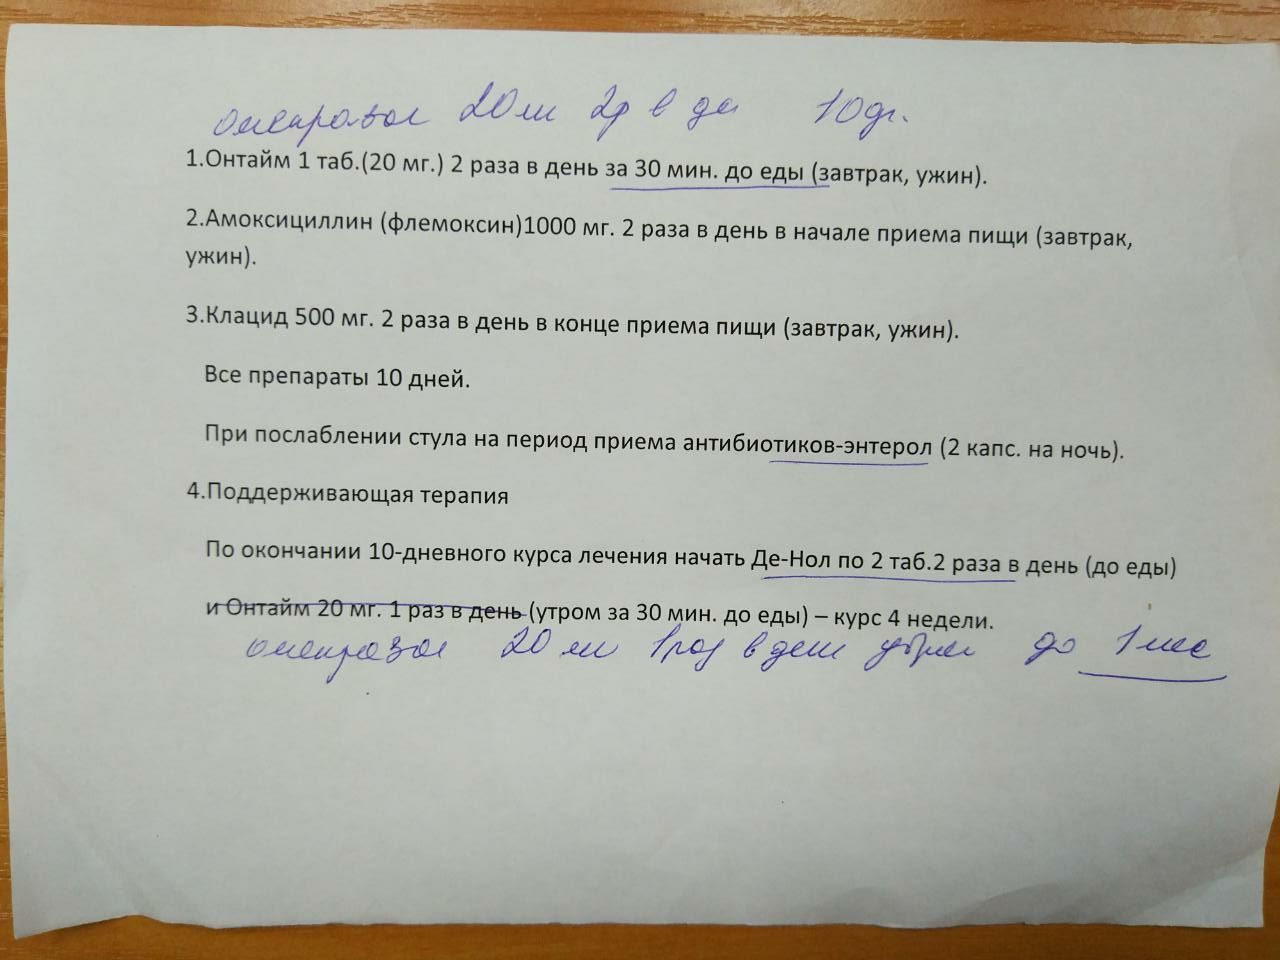 омепразол 20 мг 2р в де 10 дн.
1.Онтайм 1 таб.(20 мг.) 2 раза в день за 30 мин. до еды (завтрак, ужин).
2.Амоксициллин (флемоксин)1000 мг. 2 раза в день в начале приема пищи (завтрак,
ужин).
3.Клацид 500 мг. 2 раза в день в конце приема пищи (завтрак, ужин).
Все препараты 10 дней.
При послаблении стула на период приема антибиотиков-энтерол (2 капс. на ночь).
4.Поддерживающая терапия
По окончании 10-дневного курса лечения начать Де-Нол по 2 таб.2 раза в день (до еды)
и Онтайм 20 мг. 1 раз в день (утром за 30 мин. до еды) – курс 4 недели.
омепразол 20 мг 1 раз в день утром до 1 мес